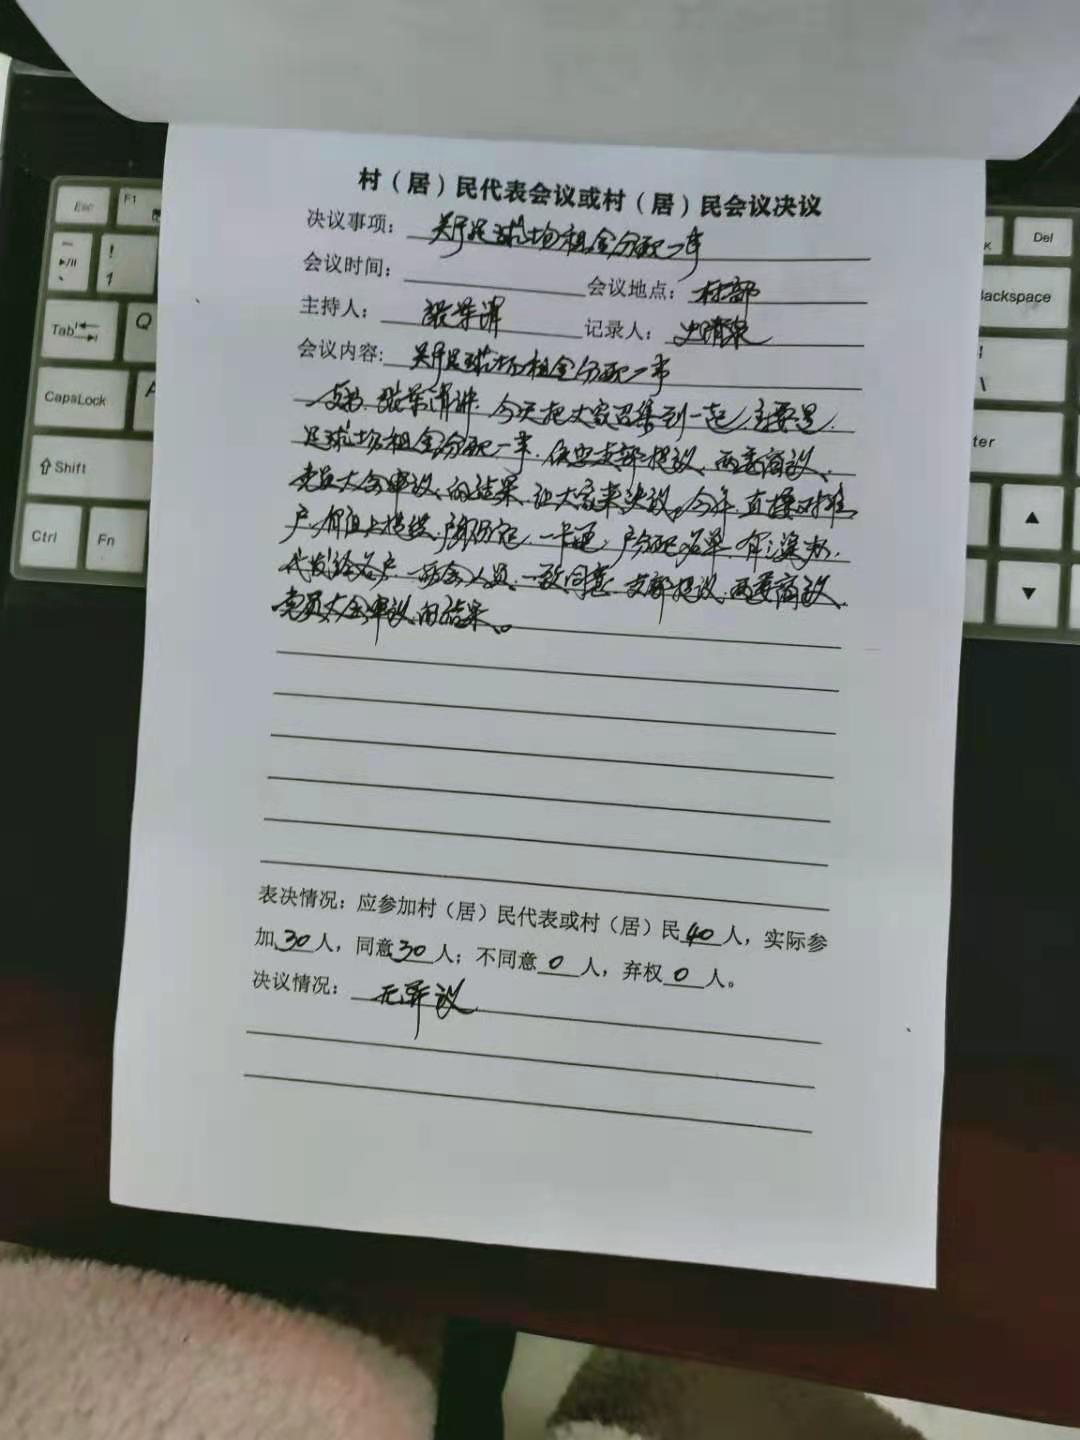 村（居）民代表会议或村（居）民会议决议
决议事项：关于足球场租金分配一事
会议时间：
会议地点：村部
主持人：张荣谱
记录人：
会议内容：关于足球场租金分配一事
支书 张荣谱讲 今天把大家召集到一起，主要是
足球场租金分配一事，依照支部提议、两委商议、
党员大会审议、的结果，让大家来决议。今年直接对准
户，有组上提供，一卡通，户分配名单 有
代发给各户 与会人员，一致同意 支部提议、两委商议、
党员大会审议、的结果。
表决情况：应参加村（居）民代表或村（居）民 40 人，实际参
加 30 人，同意 30 人；不同意 0 人，弃权 0 人。
决议情况：无异议
Esc
F1
!
1
Tab
Q
CapsLock
A
Shift
Ctrl
Fn
K
Del
Backspace
\
ter